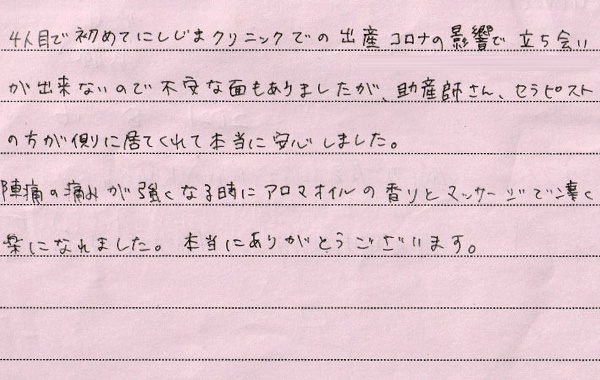 4人目で初めてにしじまクリニックでの出産 コロナの影響で立ち会い
が出来ないので不安な面もありましたが、助産師さん、セラピスト
の方が側に居てくれて本当に安心しました。
陣痛の痛みが強くなる時にアロマオイルの香りとマッサージで凄く
楽になれました。本当にありがとうございます。